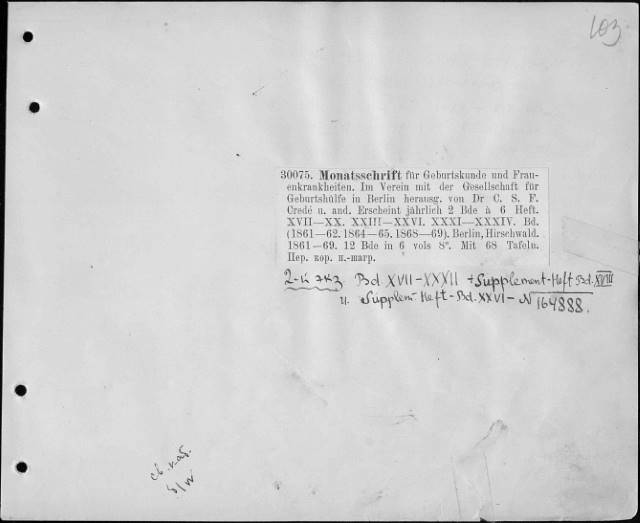 103
30075. Monatsschrift für Geburtskunde und Frau-
enkrankheiten. Im Verein mit der Gesellschaft für
Geburtshülfe in Berlin herausg. von Dr C. S. F.
Credé u. and. Erscheint jährlich 2 Bde à 6 Heft.
XVII—XX. XXIII—XXVI. XXXI—XXXIV. Bd.
(1861—62. 1864—65. 1868—69). Berlin, Hirschwald.
1861—69. 12 Bde in 6 vols 8°. Mit 68 Tafeln.
Пер. кор. п.-магр.
2-й экз Bd XVII-XXXII + Supplement-Heft Bd. XVIII
u. Supplem. Heft-Bd. XXVI - N 164888.